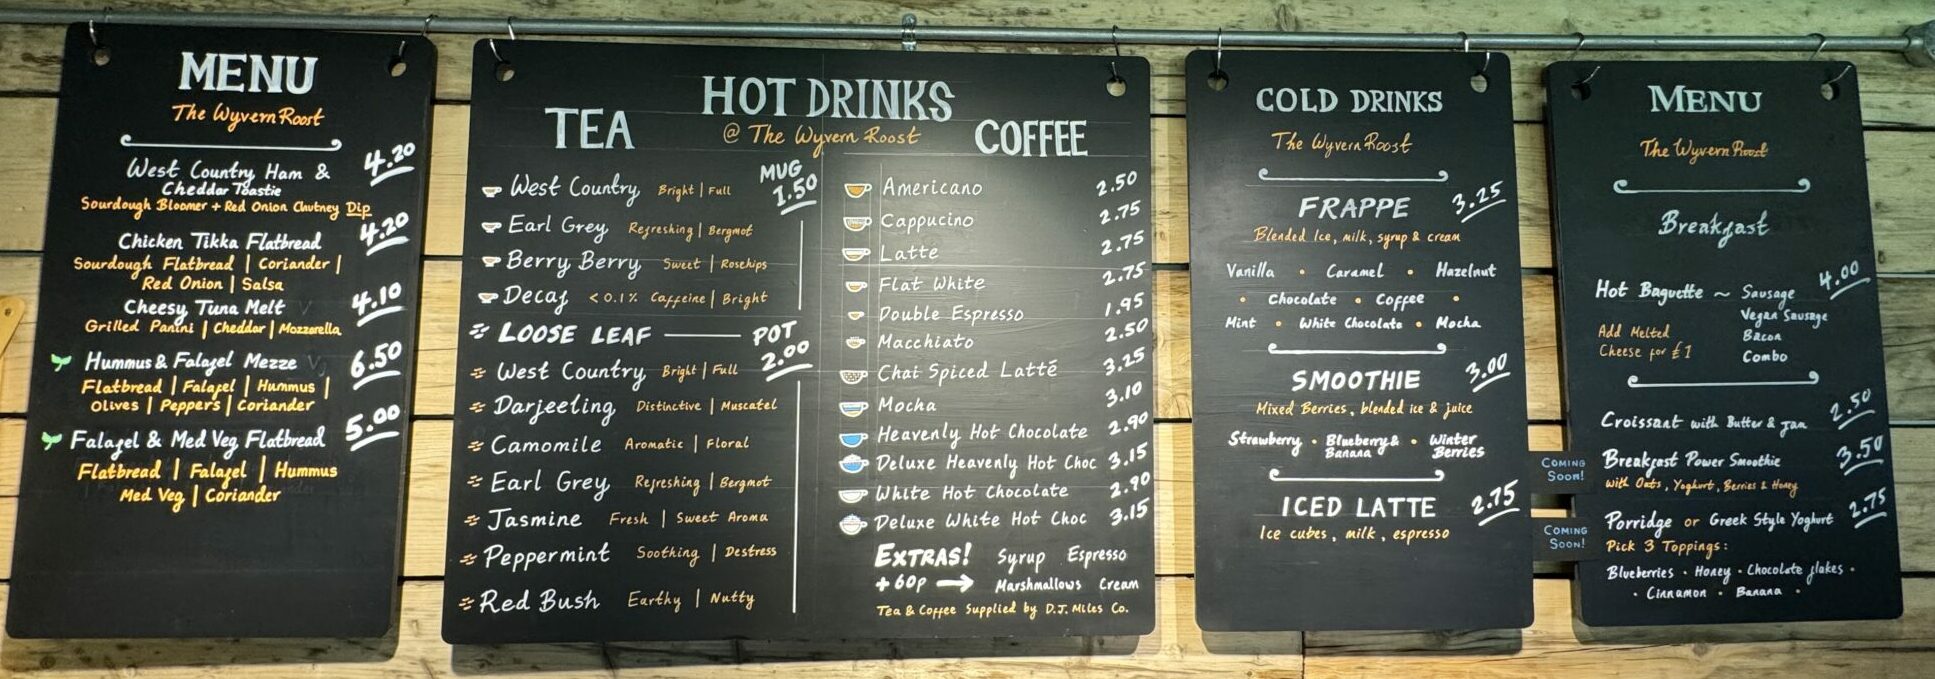 MENU
The Wyvern Roost
West Country Ham & 4.20
Cheddar Toastie
Sourdough Bloomer + Red Onion Chutney Dip
Chicken Tikka Flatbread 4.20
Sourdough Flatbread | Coriander |
Red Onion | Salsa
Cheesy Tuna Melt 4.10
Grilled Panini | Cheddar | Mozzarella
Hummus & Falafel Mezze 6.50
Flatbread | Falafel | Hummus |
Olives | Peppers | Coriander
Falafel & Med Veg Flatbread 5.00
Flatbread | Falafel | Hummus
Med Veg | Coriander
HOT DRINKS
@ The Wyvern Roost
TEA
MUG
West Country Bright | Full 1.50
Earl Grey Refreshing | Bergmot
Berry Berry Sweet | Rosehips
Decaf <0.1% Caffeine | Bright
LOOSE LEAF POT
West Country Bright | Full 2.00
Darjeeling Distinctive | Muscatel
Camomile Aromatic | Floral
Earl Grey Refreshing | Bergmot
Jasmine Fresh | Sweet Aroma
Peppermint Soothing | Destress
Red Bush Earthy | Nutty
COFFEE
Americano 2.50
Cappucino 2.75
Latte 2.75
Flat White 2.75
Double Espresso 1.95
Macchiato 2.50
Chai Spiced Latté 3.25
Mocha 3.10
Heavenly Hot Chocolate 2.90
Deluxe Heavenly Hot Choc 3.15
White Hot Chocolate 2.90
Deluxe White Hot Choc 3.15
EXTRAS! Syrup Espresso
+60p → Marshmallows Cream
Tea & Coffee Supplied by D.J. Miles Co.
COLD DRINKS
The Wyvern Roost
FRAPPE 3.25
Blended Ice, milk, syrup & cream
Vanilla • Caramel • Hazelnut
• Chocolate • Coffee •
Mint • White Chocolate • Mocha
SMOOTHIE 3.00
Mixed Berries, blended ice & juice
Strawberry • Blueberry & • Winter
Banana Berries
ICED LATTE 2.75
Ice cubes, milk, espresso
MENU
The Wyvern Roost
Breakfast
Hot Baguette ~ Sausage 4.00
Vegan Sausage
Bacon
Combo
Add Melted
Cheese for £1
Croissant with Butter & Jam 2.50
COMING
SOON!
Breakfast Power Smoothie 3.50
with Oats, Yoghurt, Berries & Honey
COMING
SOON!
Porridge or Greek Style Yoghurt 2.75
Pick 3 Toppings:
Blueberries • Honey • Chocolate flakes •
• Cinnamon • Banana •